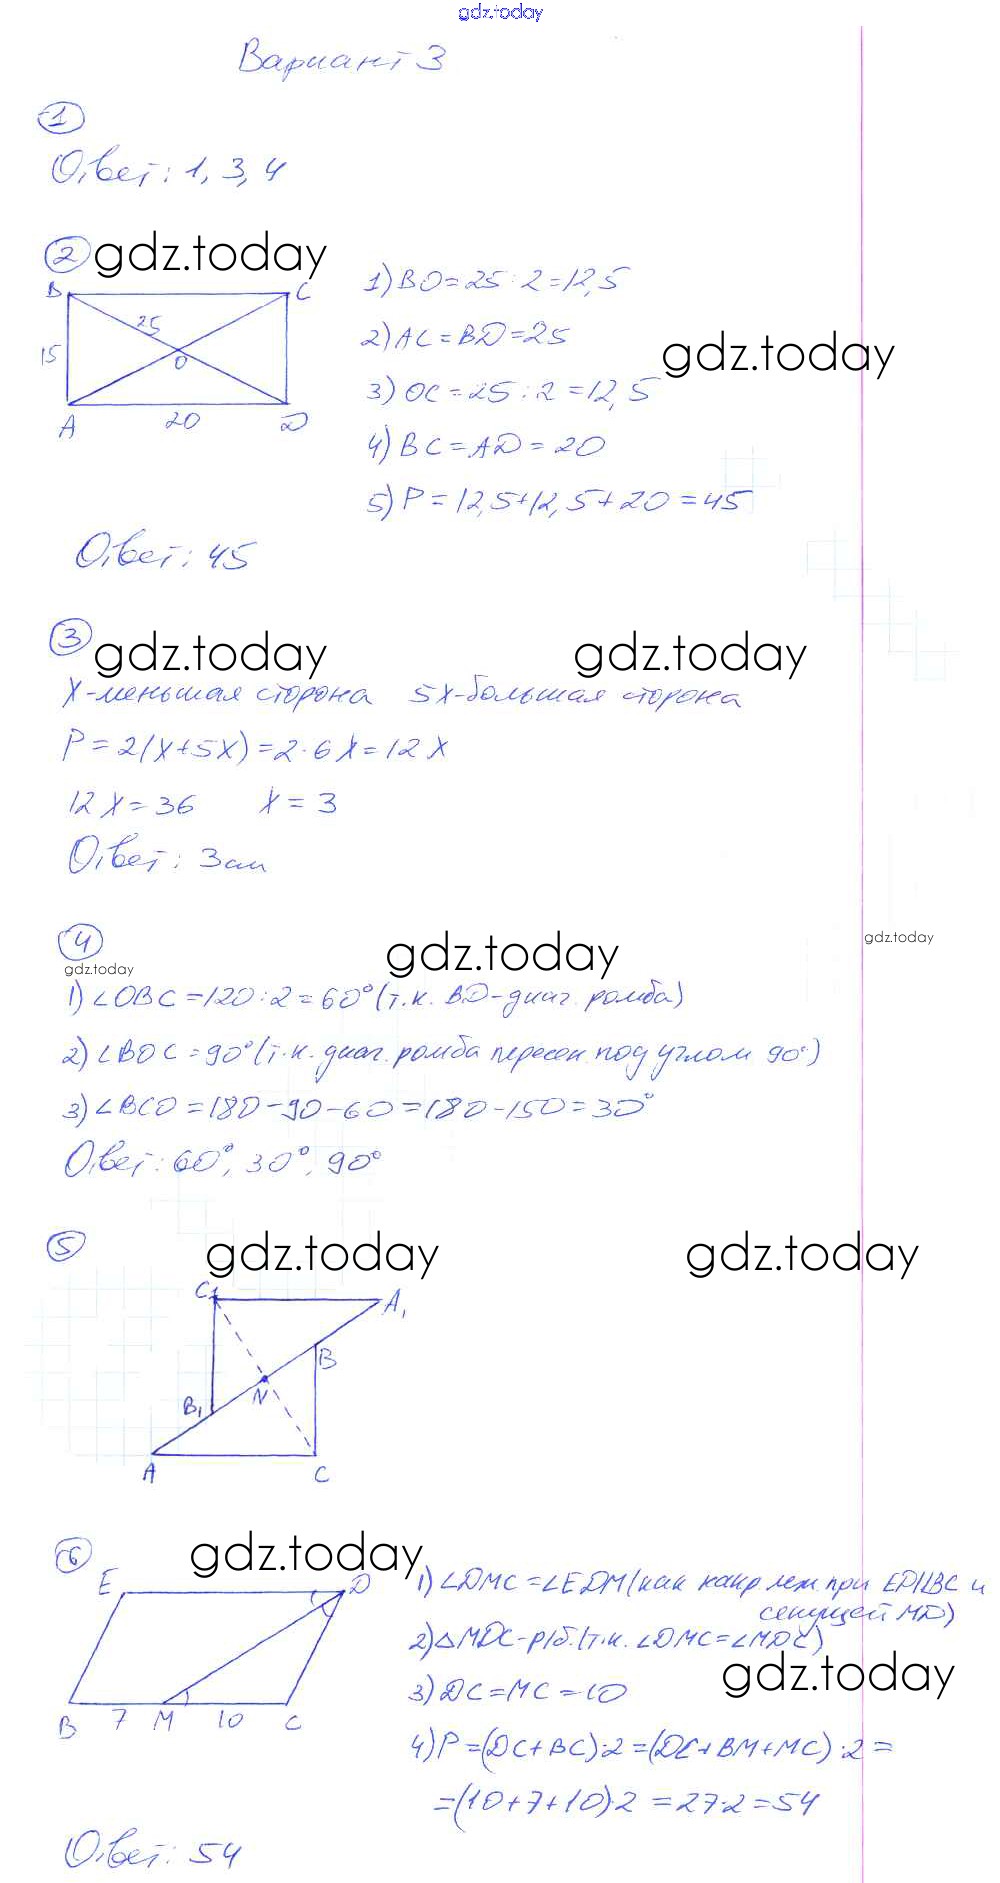 gdz.today
Вариант 3
1
Ответ: 1, 3, 4
2 gdz.today
B C
25
15
O
A 20 D
1) BO = 25 : 2 = 12,5
2) AC = BD = 25
gdz.today
3) OC = 25 : 2 = 12,5
4) BC = AD = 20
5) P = 12,5 + 12,5 + 20 = 45
Ответ: 45
3
gdz.today gdz.today
X - меньшая сторона 5X - большая сторона
P = 2(X + 5X) = 2 · 6X = 12X
12X = 36 X = 3
Ответ: 3см
4 gdz.today gdz.today
gdz.today
1) ∠OBC = 120 : 2 = 60° (т.к. BD - диаг. ромба)
2) ∠BOC = 90° (т.к. диаг. ромба пересек под углом 90°)
3) ∠BCO = 180 - 90 - 60 = 180 - 150 = 30°
Ответ: 60°, 30°, 90°
5
gdz.today gdz.today
C₁ A₁
B
N
B₁
A C
6 gdz.today
E D
B 7 M 10 C
1) ∠DMC = ∠EDM (как накр леж. при ED||BC и
секущей MD)
2) △MDC - р/б. (т.к. ∠DMC = ∠MDC)
gdz.today
3) DC = MC = 10
4) P = (DC + BC) · 2 = (DC + BM + MC) · 2 =
= (10 + 7 + 10) · 2 = 27 · 2 = 54
Ответ: 54